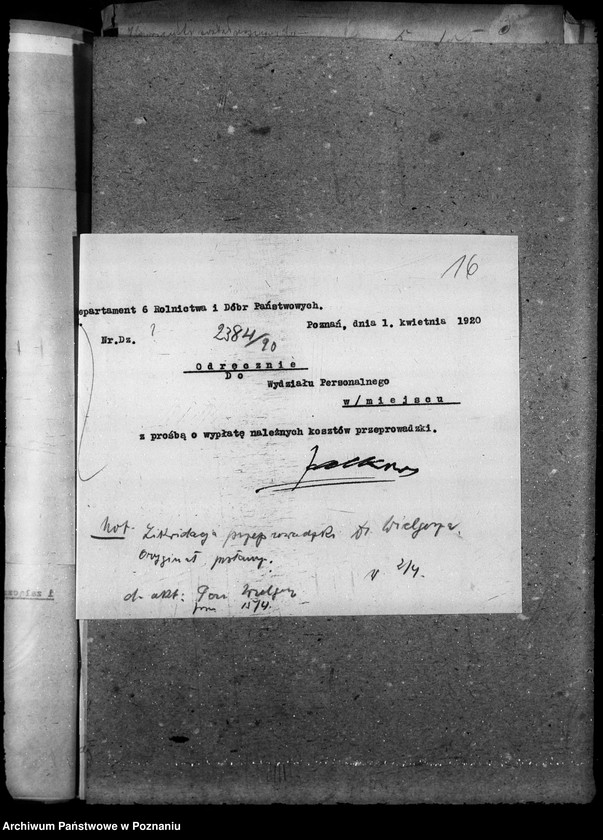 16
epartament 6 Rolnictwa i Dóbr Państwowych.
Poznań, dnia 1. kwietnia 1920
Nr.Dz. 2384/20
Odręcznie
Do
Wydziału Personalnego
w/miejscu
z prośbą o wypłatę należnych kosztów przeprowadzki.
Not. Likwidacja przeprowadzki Dr. Wielgosza.
Oryginał
2/4.
d. akt: Pers
15/4.
Archiwum Państwowe w Poznaniu